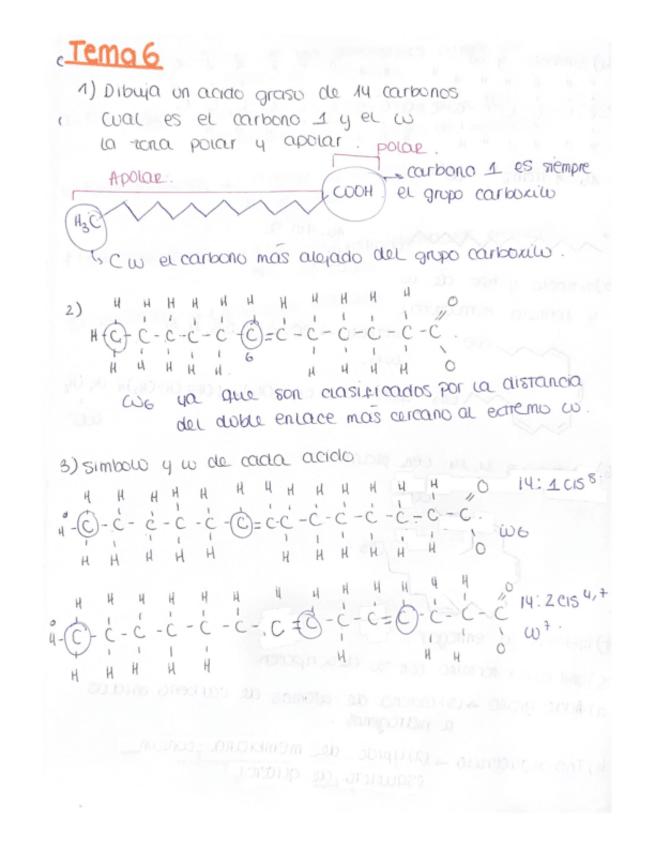 Tema 6
1) Dibuja un acido graso de 14 carbonos
Cual es el carbono 1 y el ω
la zona polar y apolar.
polar.
Apolar.
carbono 1 es siempre
el grupo carboxilo
COOH
H₃C
C ω el carbono más alejado del grupo carboxilo.
2)
H H H H H H H H H H H O
H-C-C-C-C-C-C=C-C-C-C-C-C-C
H H H H H 6 H H H H O
ω6 ya que son clasificados por la distancia
del doble enlace más cercano al extremo ω.
3) simbolo y ω de cada acido
H H H H H H H H H H H H H O 14: 1 cis⁸
H-C-C-C-C-C-C=C-C-C-C-C-C-C-C
ω6
H H H H H H H H H H H O
H H H H H H H H H H H H H O
14: 2 cis⁴,⁷
H-C-C-C-C-C-C-C=C-C-C=C-C-C-C
ω⁷.
H H H H H H H H O